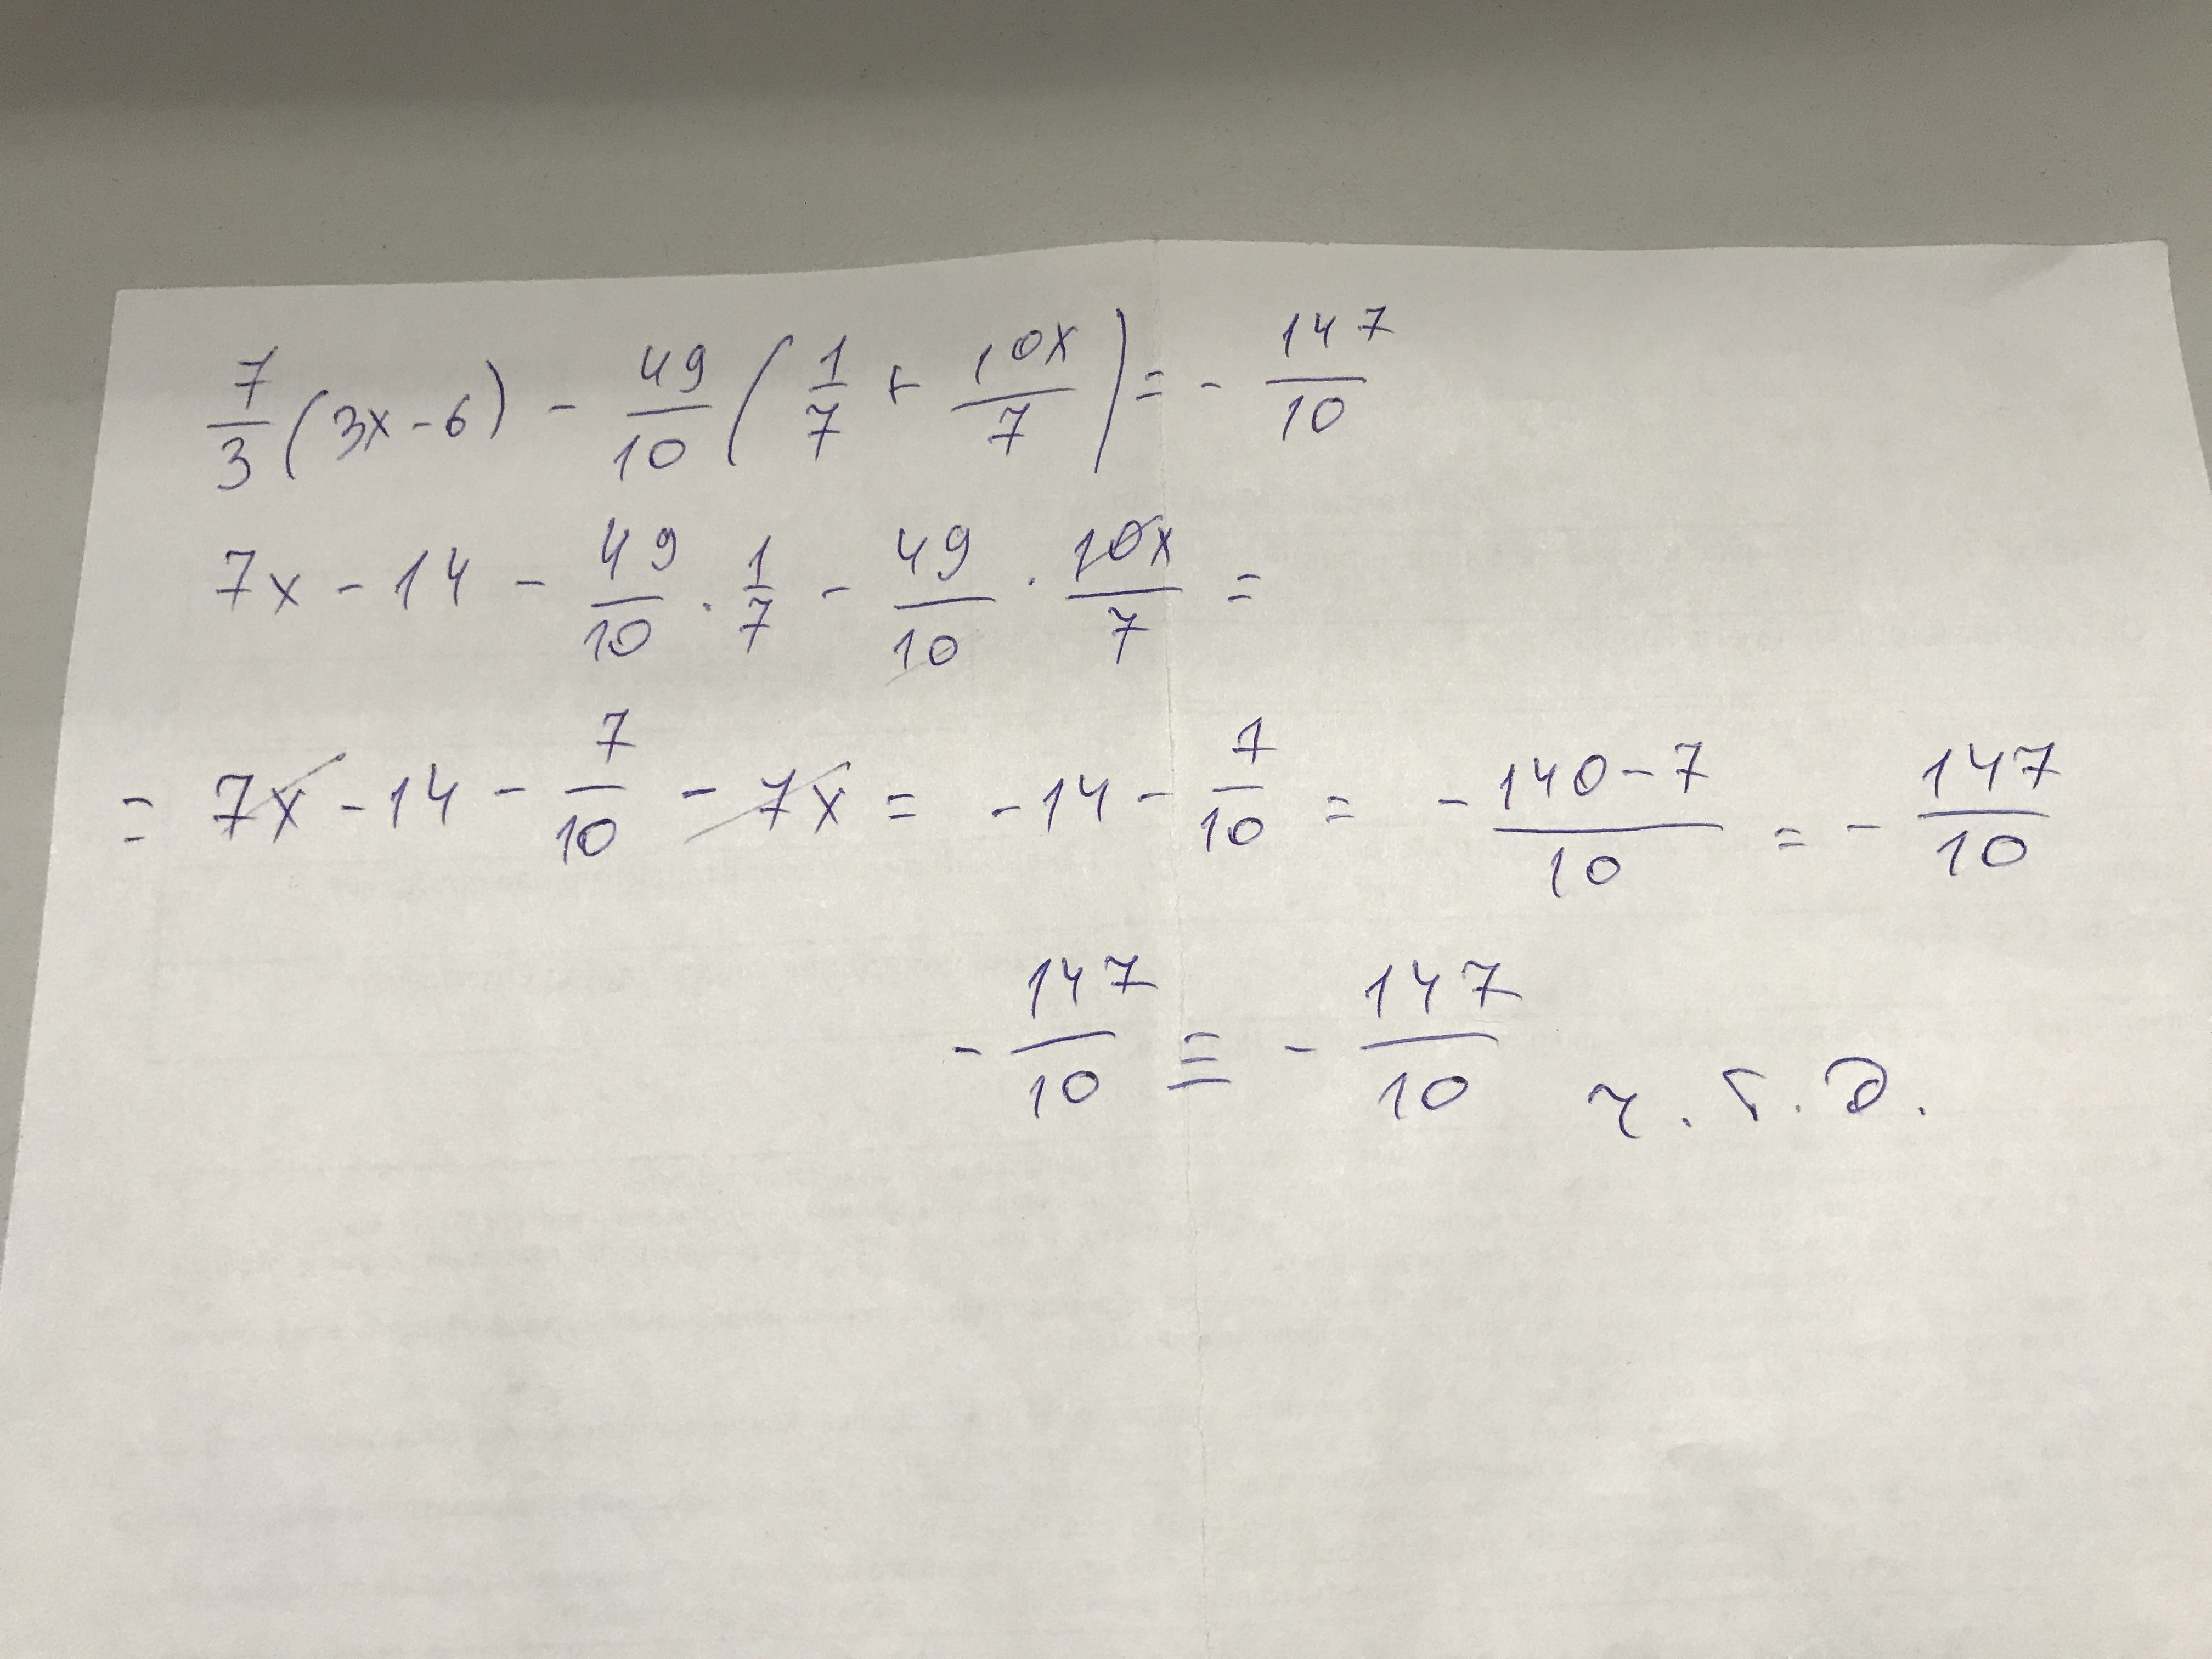 7/3 (3x - 6) - 49/10 (1/7 + 10x/7) = - 147/10
7x - 14 - 49/10 · 1/7 - 49/10 · 10x/7 =
= 7x - 14 - 7/10 - 7x = - 14 - 7/10 = - 140 - 7/10 = - 147/10
- 147/10 ≡ - 147/10 ч.т.д.